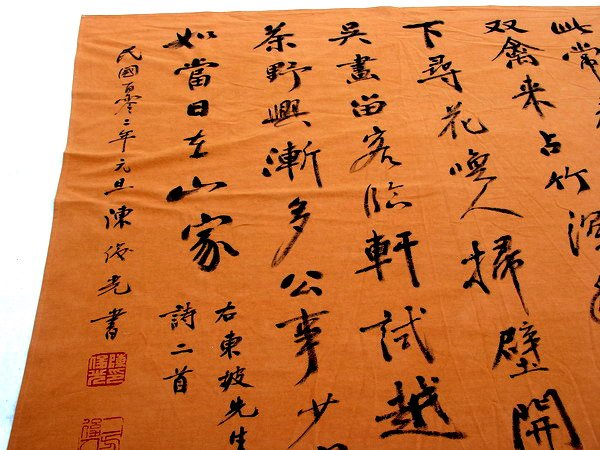 此常
双禽來占竹深
下尋花喚人掃壁開
吳畫留客臨軒試越
茶野興漸多公事少
如當日在山家
右東坡先生
詩二首
民國百零二年元旦陳俊光書